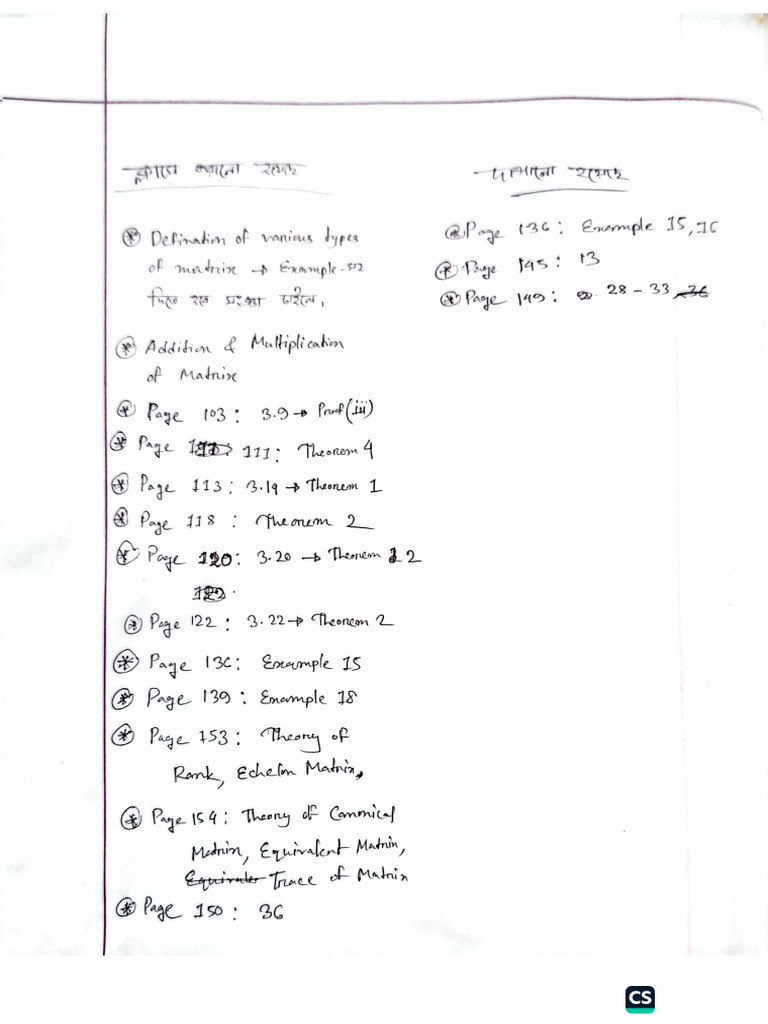 ক্লাসে করানো হয়েছে
Defination of various types
of matrix → Example-সহ
দিতে হবে সংজ্ঞা চাইলে।
Addition & Multiplication
of Matrix
Page 103: 3.9 → Proof (iii)
Page 111: Theorem 4
Page 113: 3.19 → Theorem 1
Page 118: Theorem 2
Page 120: 3.20 → Theorem 2
Page 122: 3.22 → Theorem 2
Page 136: Example 15
Page 139: Example 18
Page 153: Theory of
Rank, Echelon Matrix,
Page 154: Theory of Canonical
Matrix, Equivalent Matrix,
Trace of Matrix
Page 150: 36
দাগানো হয়েছে
Page 136: Example 15, 16
Page 145: 13
Page 149: 28 - 33
CS